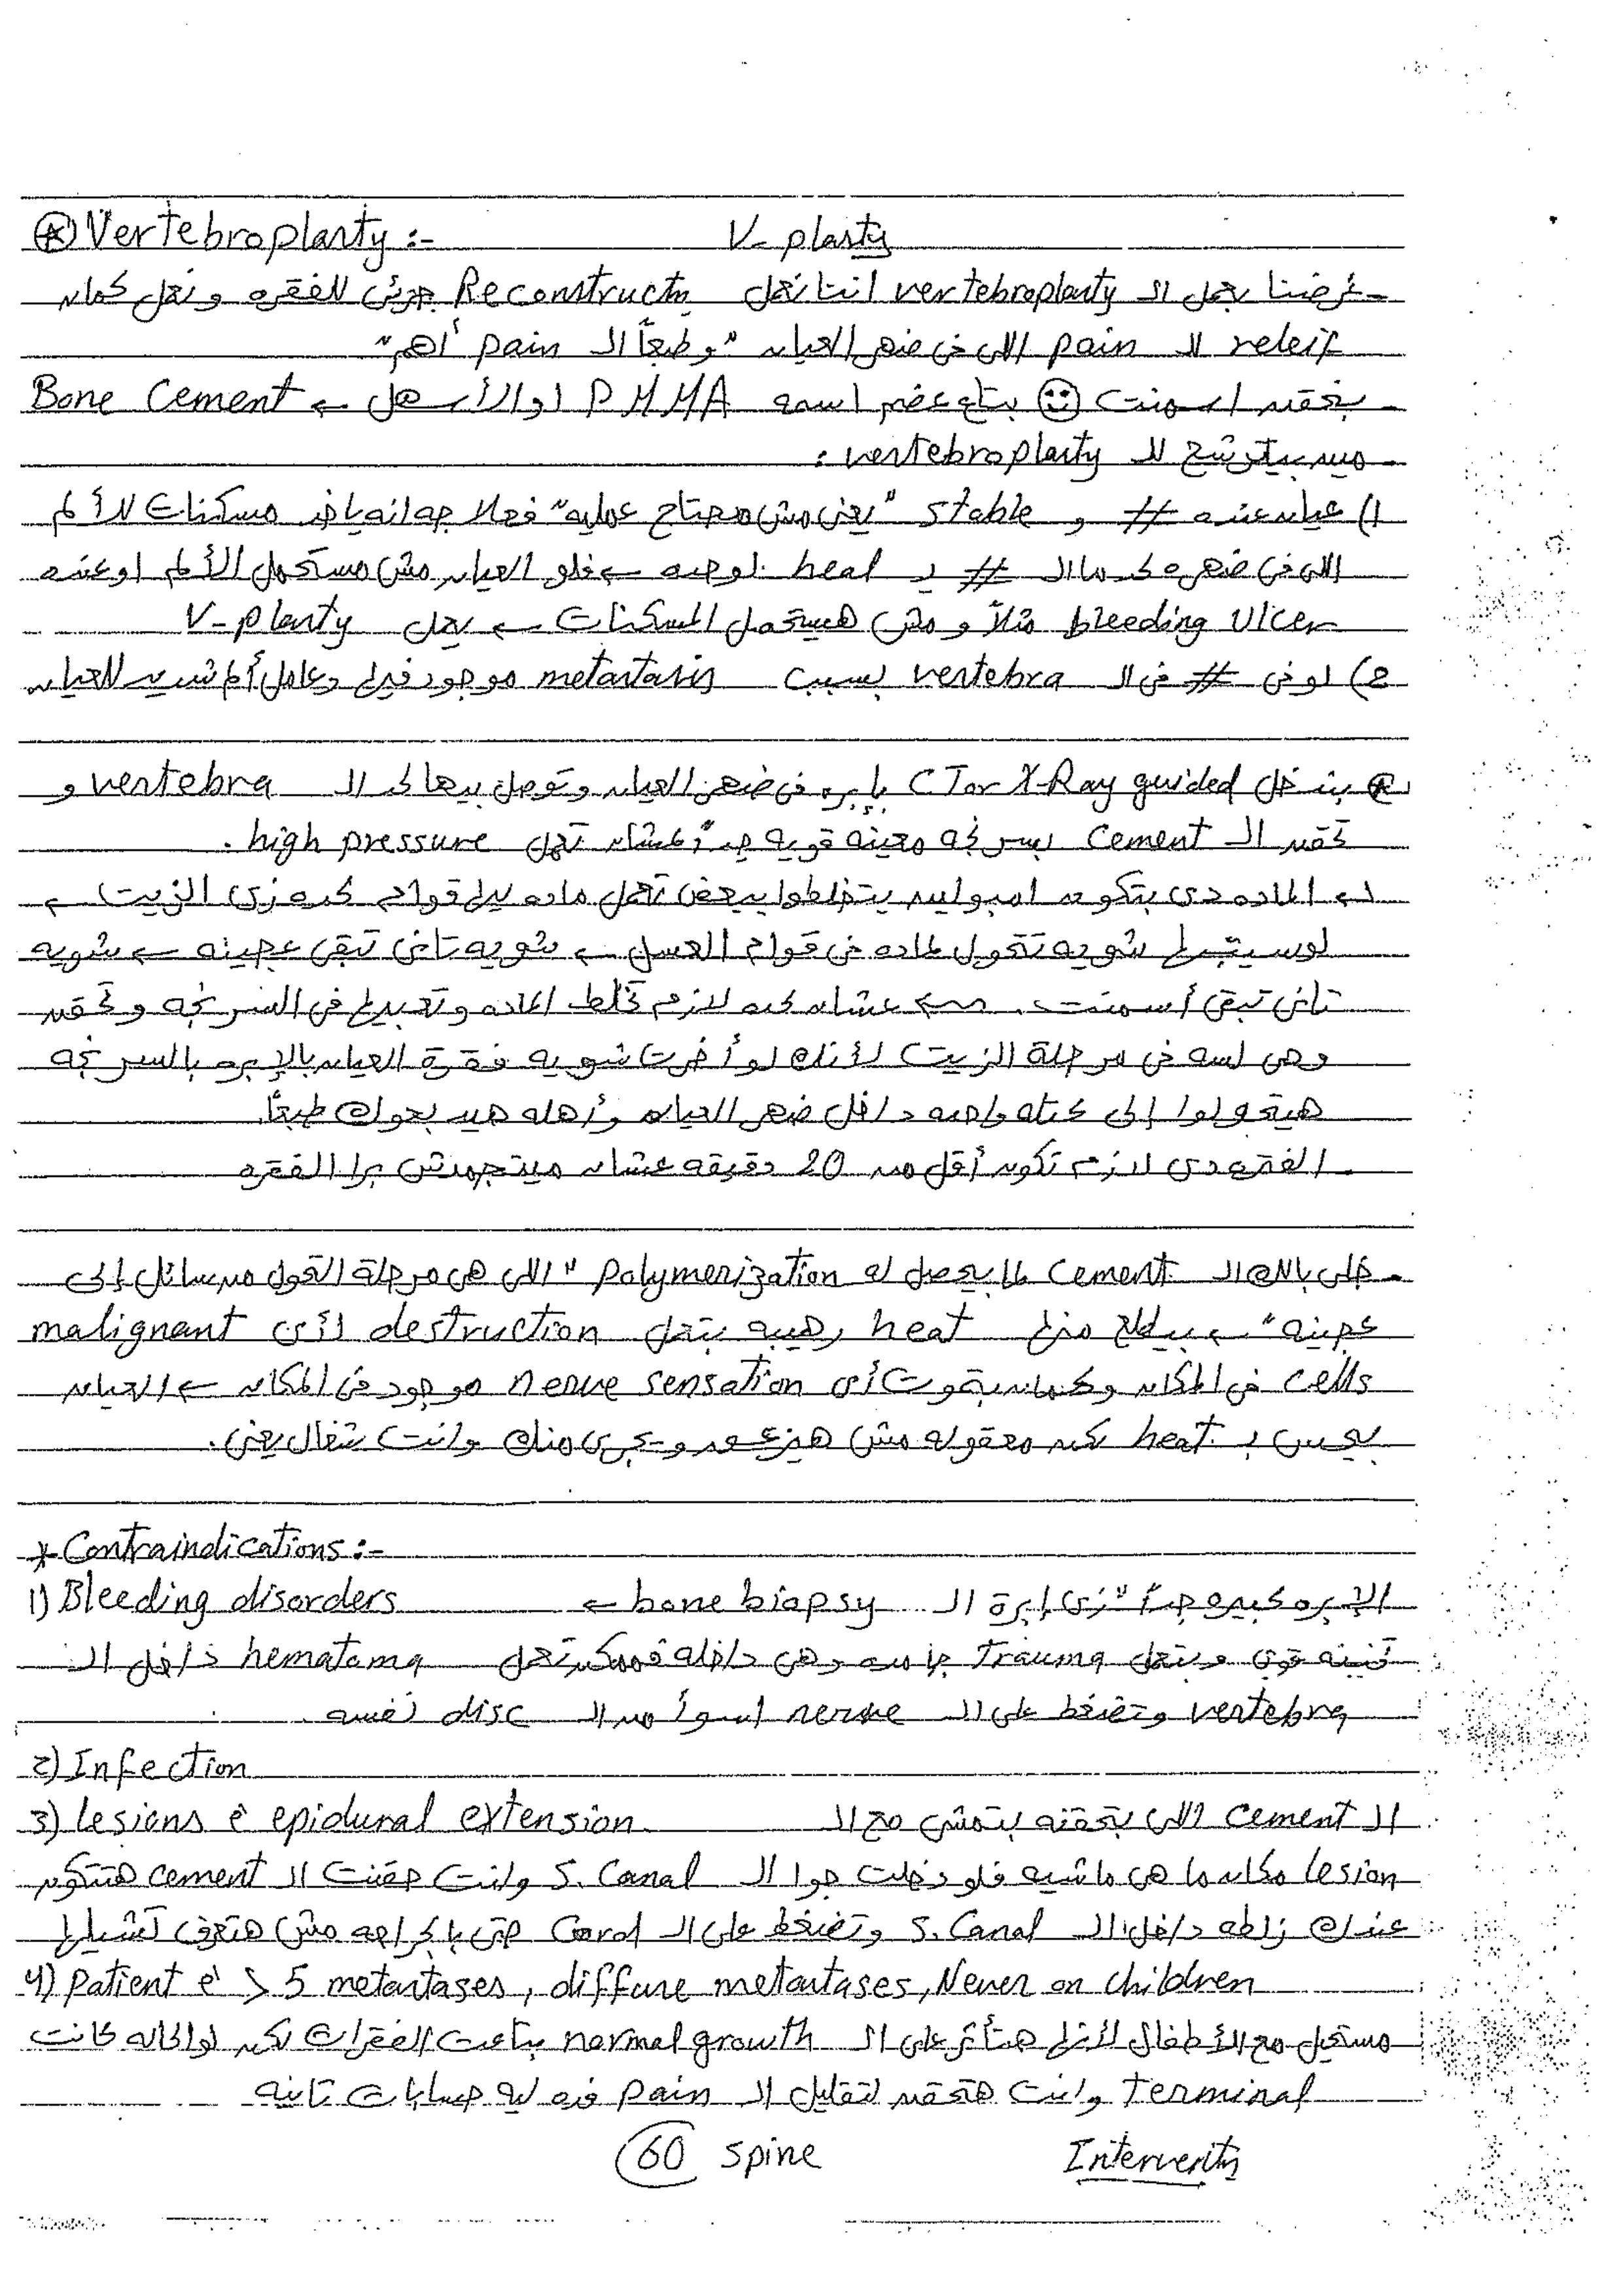 ⊛ Vertebroplasty :- V-plasty
- غرضنا بعمل الـ vertebroplasty اننا نعمل Reconstructn جزئى للفقره ونعمل كمان
releif للـ pain اللى فى ضهر العيان "وطبعاً الـ pain أهم"
- بنحقن اسمنت ☺ بتاع عضم اسمه PMMA او الأسهل ← Bone Cement
- مين بيترشح للـ vertebroplasty :
1) عيان عنده # و stable "يعنى مش محتاج عمليه" فعلاجه انه ياخد مسكنات للألم
اللى فى ضهره لحد ما الـ # يـ heal لوحده ← فلو العيان مش مستحمل الألم او عنده
bleeding ulcer مثلاً ومش هيستحمل المسكنات ← يعمل V-plasty
2) لو فى # فى الـ vertebra بسبب metastasis موجود فيها وعامل ألم شديد للعيان
⊛ بتدخل CT or X-Ray guided بإبره فى ضهر العيان وتوصل بيها لحد الـ vertebra و
تحقن الـ Cement بسرنجه معينه قويه جداً عشان تعمل high pressure .
لـ الماده دى بتكون امبولين يتخلطوا ببعض تعمل ماده ليها قوام كده زى الزيت ←
لو سيبتها شويه تتحول لماده فى قوام العسل ← شويه تانى تبقى عجينه ← شويه
تانى تبقى أسمنت. ← عشان كده لازم تخلط الماده وتعبيها فى السرنجه وتحقن
وهى لسه فى مرحلة الزيت لأنك لو أخرت شويه فقرة العيان بالإبره بالسرنجه
هيتحولوا إلى كتله واحده داخل ضهر العيان وأهله هيدبحوك طبعاً.
- الفتره دى لازم تكون أقل من 20 دقيقه عشان ميتجمدش برا الفقره
- خلى بالك الـ Cement لما بيحصل له polymerization "اللى هى مرحلة التحول من سائل إلى
عجينه" ← بيطلع منها heat رهيبه بتعمل destruction لأى malignant
cells فى المكان وكمان بيموت أى nerve sensation موجود فى المكان ← العيان
بيحس بـ heat لكن معقوله مش هيزعق ويجرى منك وانت شغال يعنى.
* Contraindications :-
1) Bleeding disorders الإبره كبيره جداً "زى إبرة الـ bone biopsy ←
تخينه قوى وبتعمل Trauma جامده وهى داخله فممكن تعمل hematoma داخل الـ
vertebra وتضغط على الـ nerve اسوأ من الـ disc نفسه .
2) Infection
3) Lesions c̄ epidural extension الـ cement اللى بتحقنه بيتمشى مع الـ
lesion مكان ما هى ماشيه فلو دخلت جوا الـ S. Canal وانت حقنت الـ cement هتتكون
عندك زلطه داخل الـ S. Canal وتضغط على الـ Cord حتى بالجراحه مش هتعرف تشيلها
4) patient c̄ > 5 metastases , diffuse metastases, Never on children
مستحيل مع الأطفال لأنها هتأثر على الـ normal growth بتاعت الفقرات لكن لو الحاله كانت
terminal وانت هتحقن لتقليل الـ pain فده ليه حسابات تانيه
60 spine Interventn